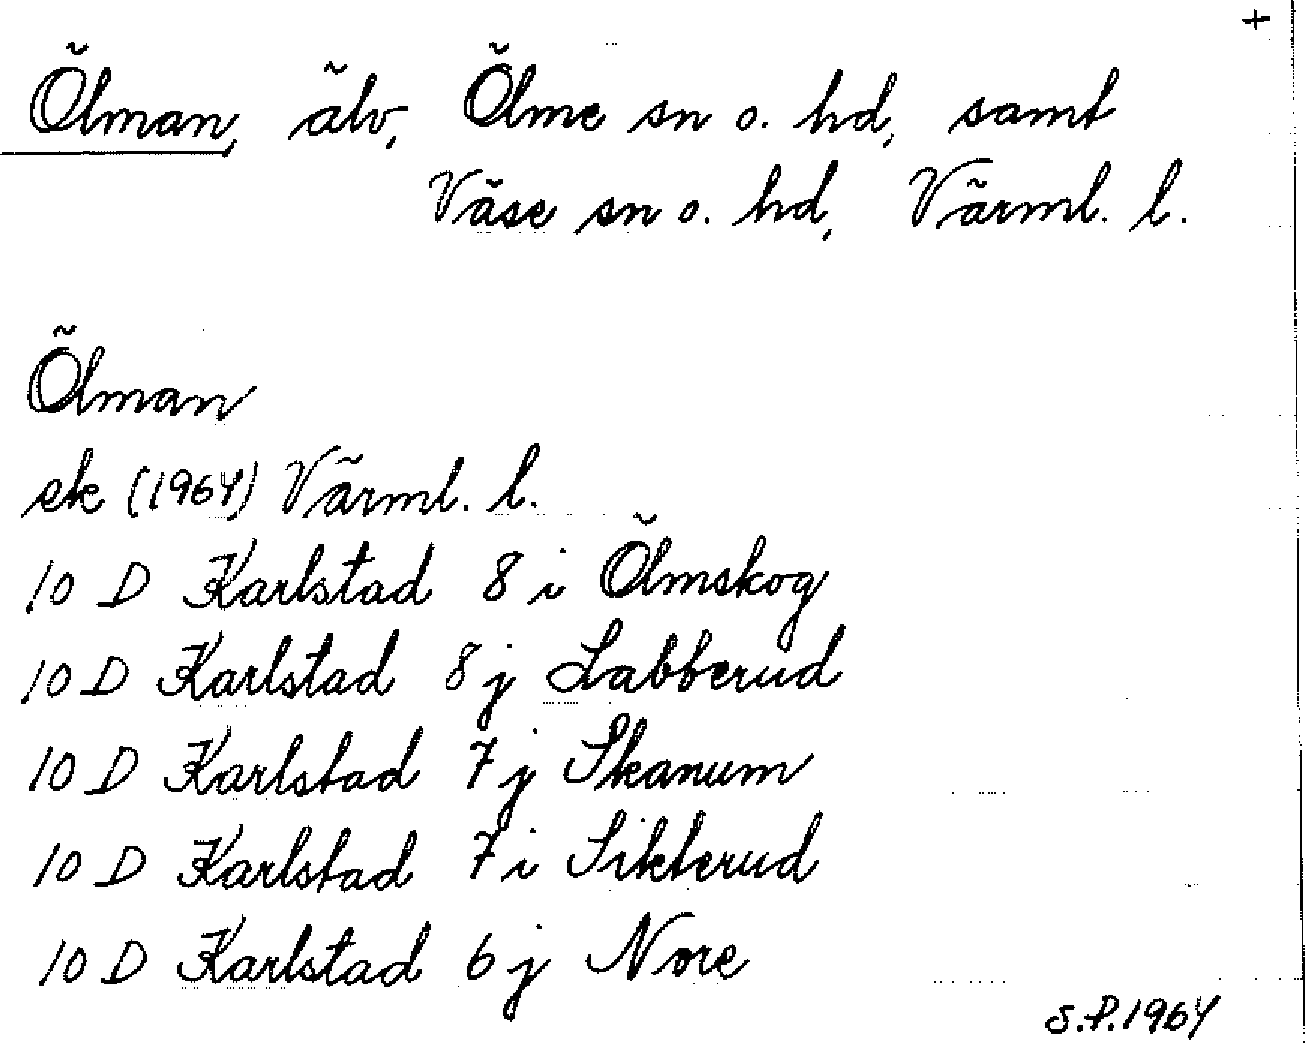 +
Ölman, älv, Ölme sn o. hd, samt
Väse sn o. hd, Värml. l.
Ölman
ek (1964) Värml. l.
10 D Karlstad 8 i Ölmskog
10 D Karlstad 8 j Labberud
10 D Karlstad 7 j Skanum
10 D Karlstad 7 i Sikterud
10 D Karlstad 6 j Nore
S.P. 1964